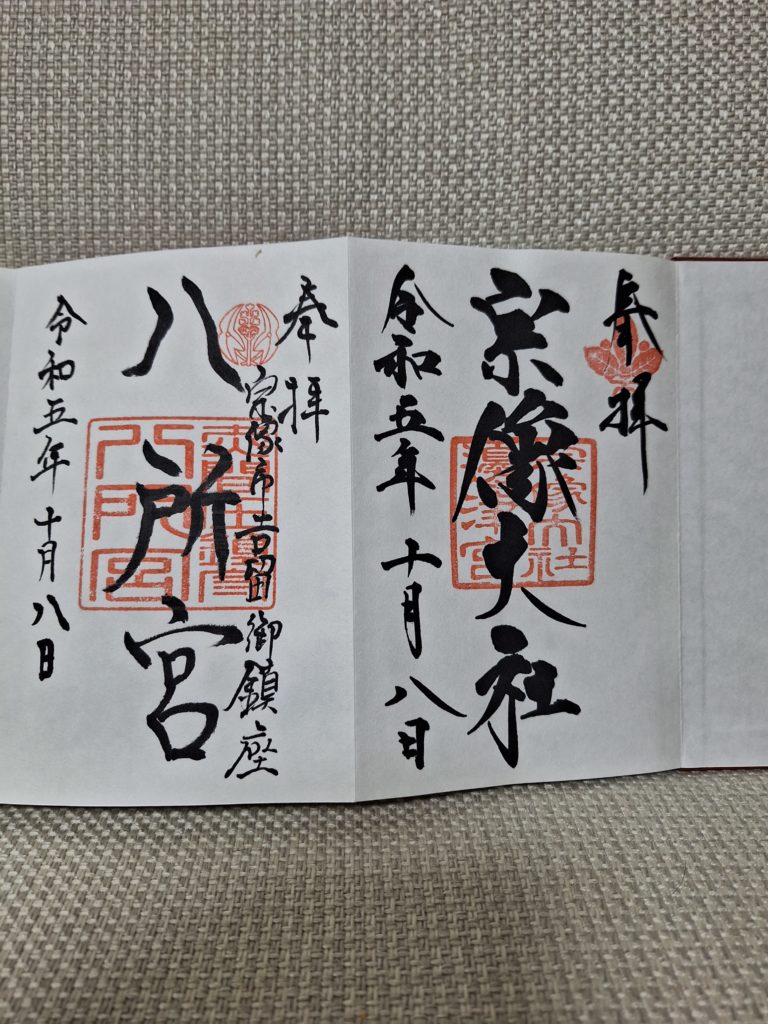 奉拝
宗像大社
宗像大社
邊津宮
令和五年十月八日
奉拝
宗像市吉留御鎮座
八所宮
八所宮
令和五年十月八日